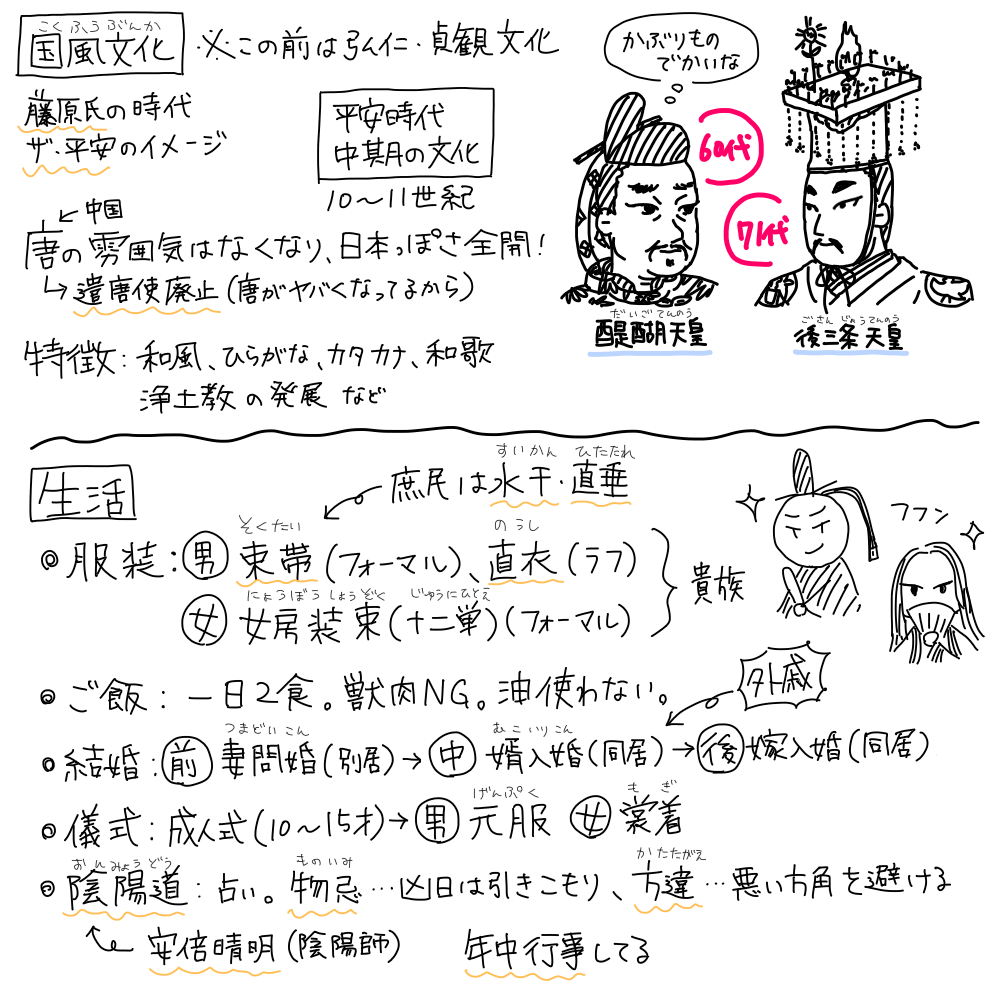 こくふうぶんか
国風文化 ・※この前は弘仁・貞観文化
かぶりもの
でかいな
藤原氏の時代
ザ・平安のイメージ
平安時代
中期の文化
10〜11世紀
60代
71代
中国
唐の雰囲気はなくなり、日本っぽさ全開！
↳遣唐使廃止（唐がヤバくなってるから）
だいごてんのう
醍醐天皇
ごさんじょうてんのう
後三条天皇
特徴：和風、ひらがな、カタカナ、和歌
浄土教の発展 など
生活
すいかん ひたたれ
庶民は水干・直垂
フフン
そくたい のうし
◎服装：男 束帯（フォーマル）、直衣（ラフ）
貴族
にょうぼうしょうぞく じゅうにひとえ
女 女房装束（十二単）（フォーマル）
外戚
◎ご飯：一日2食。獣肉NG。油使わない。
つまどいこん むこいりこん
◎結婚：前 妻問婚（別居）→中 婿入婚（同居）→後 嫁入婚（同居）
げんぷく もぎ
◎儀式：成人式（10〜15才）→男 元服 女 裳着
おんみょうどう ものいみ かたたがえ
◎陰陽道：占い。物忌…凶日は引きこもり、方違…悪い方角を避ける
安倍晴明（陰陽師） 年中行事してる